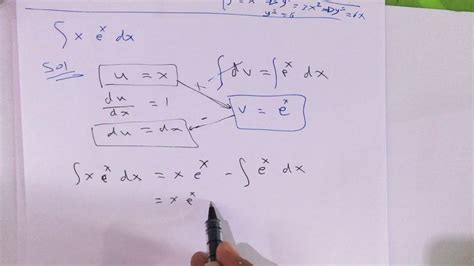 ∫ x eˣ dx
Sol
u = x
∫ dv = ∫ eˣ dx
du/dx = 1
v = eˣ
du = dx
∫ x eˣ dx = x eˣ - ∫ eˣ dx
= x eˣ